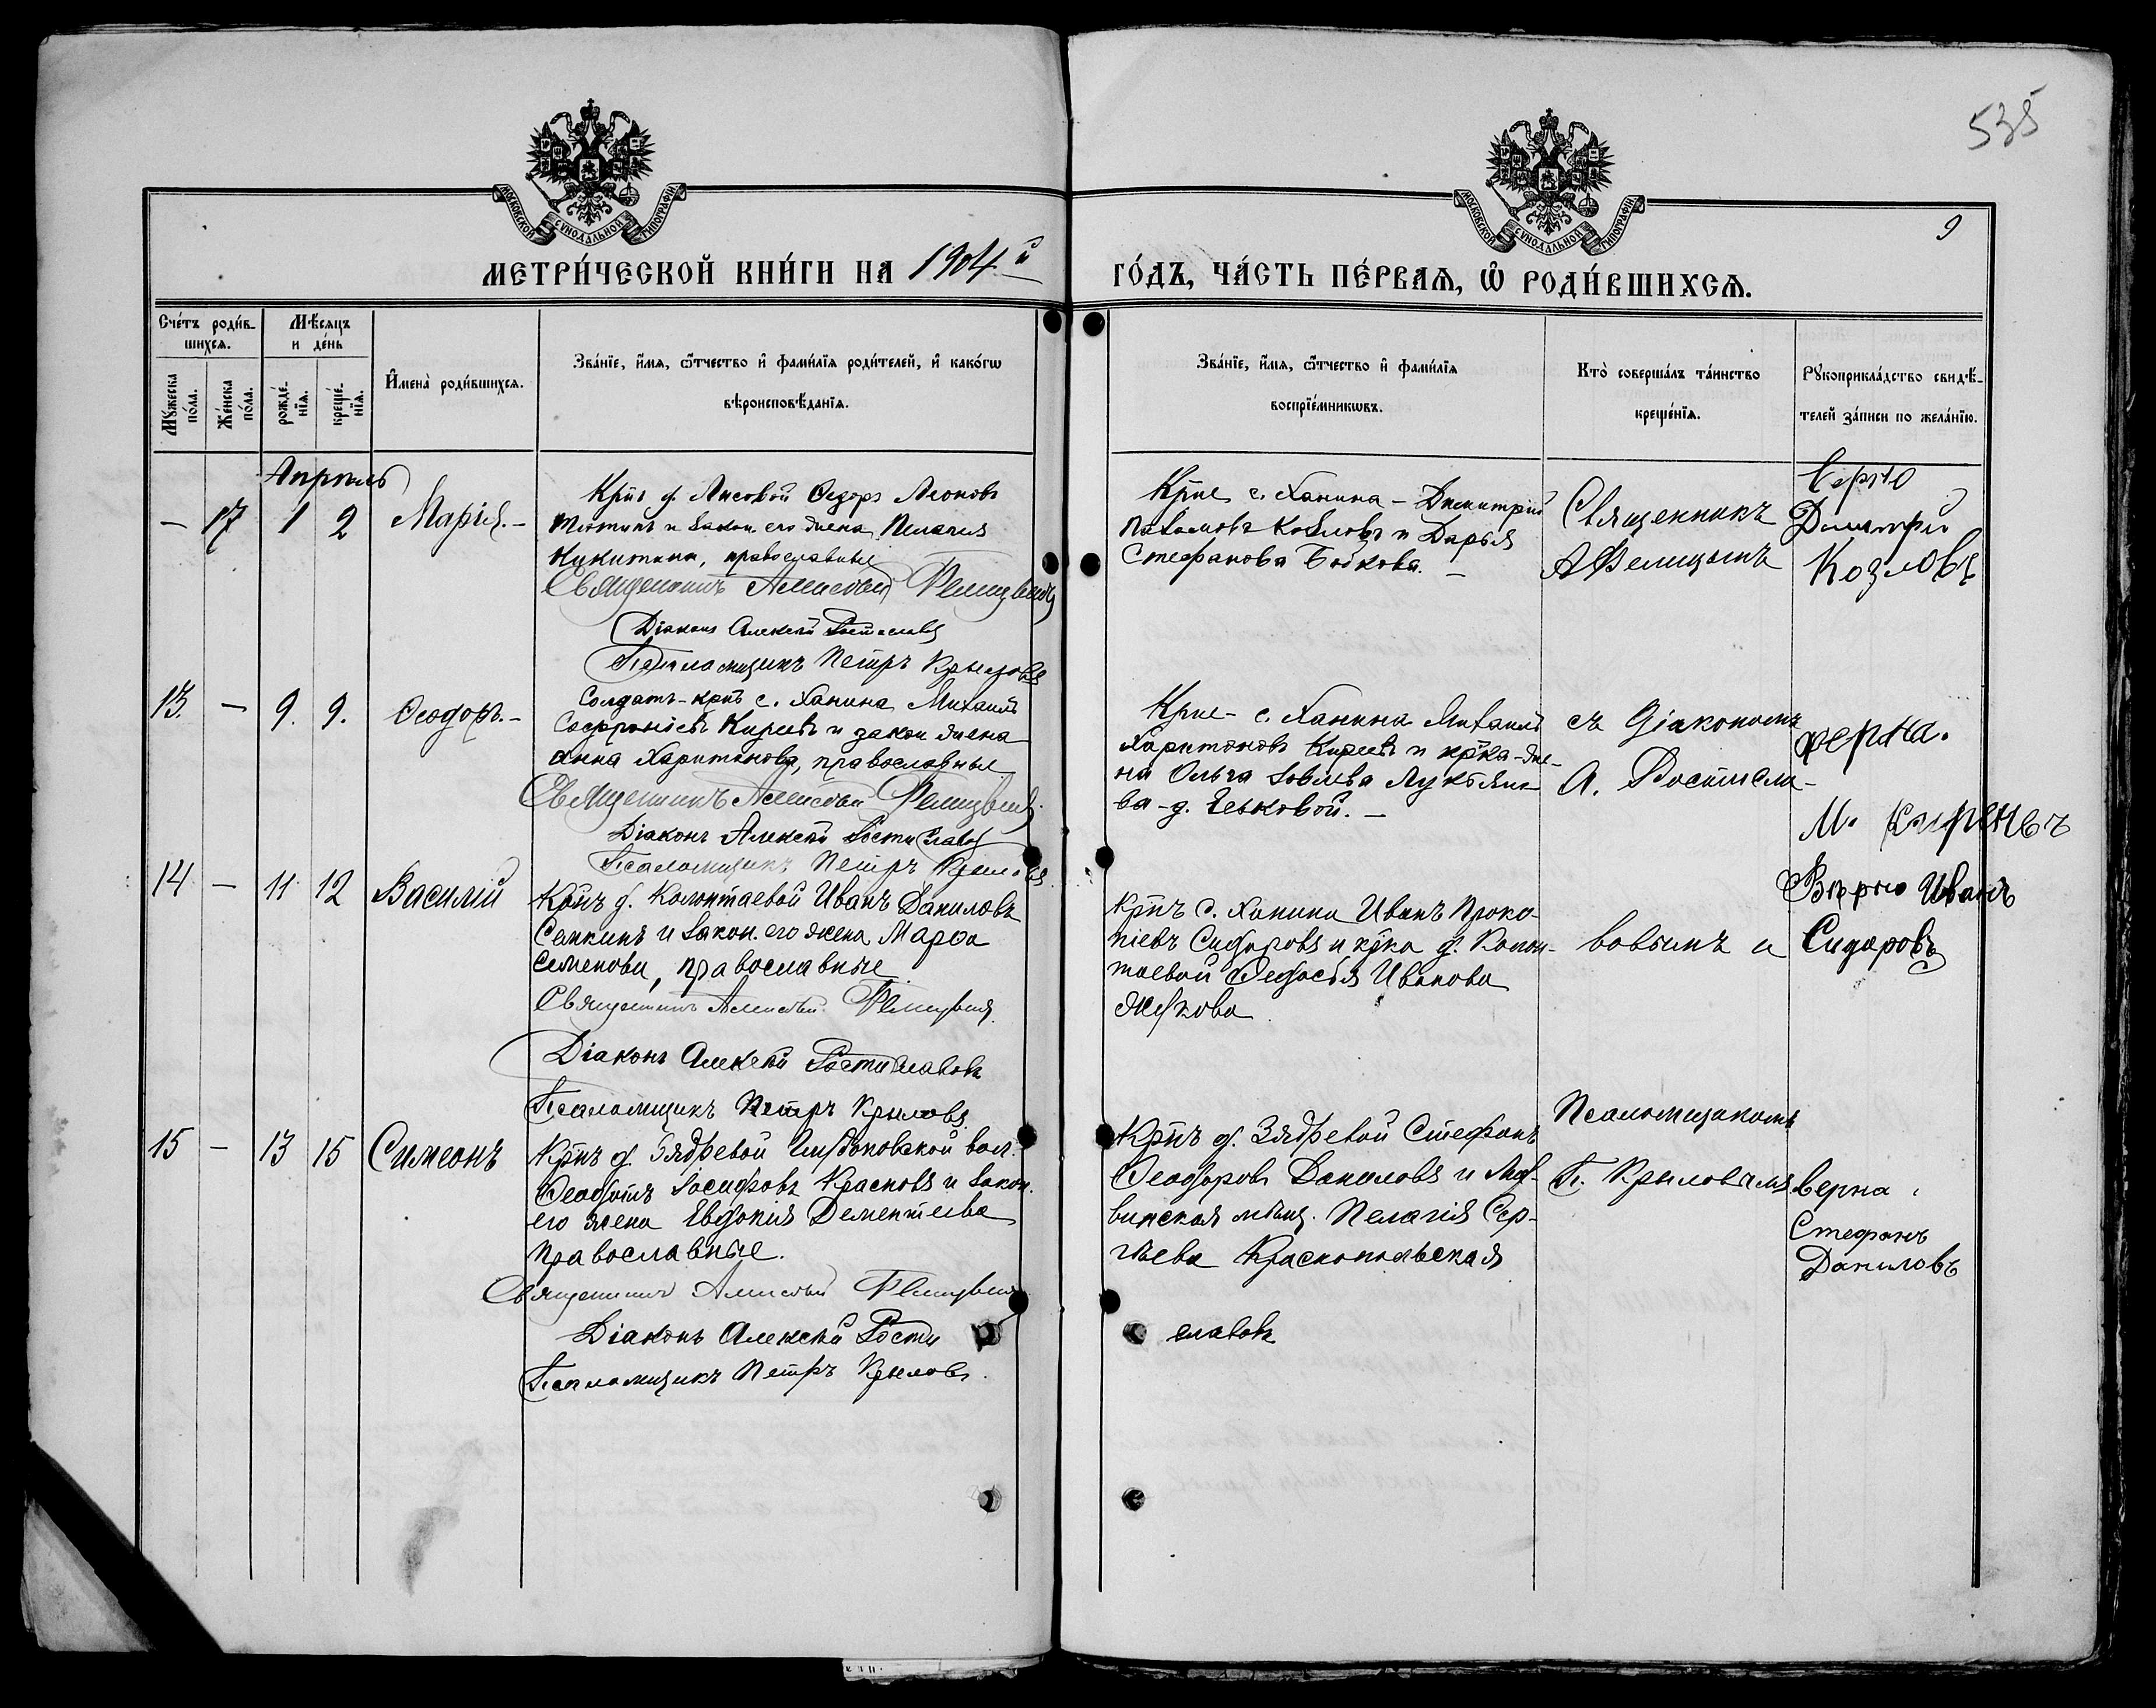 535
9
МОСКОВСКОЙ СѴНОДАЛЬНОЙ ТИПОГРАФІИ
МОСКОВСКОЙ СѴНОДАЛЬНОЙ ТИПОГРАФІИ
МЕТРИ́ЧЕСКОЙ КНИ́ГИ НА 1904й
ГО́ДЪ, ЧА́СТЬ ПЕ́РВАѦ, Ѡ҆ РОДИ́ВШИХСѦ.
Сче́тъ роди́в-
шихсѧ.
Мѣ́сѧцъ
и де́нь
Мꙋ́жеска
по́ла.
Же́нска
по́ла.
рожде́-
нїѧ.
креще́-
нїѧ.
И҆мена̀ роди́вшихсѧ.
Зва́нїе, и҆́мѧ, ѻ҆́тчество и҆ фами́лїѧ роди́телей, и҆ како́гѡ
вѣроисповѣ́данїѧ.
Зва́нїе, и҆́мѧ, ѻ҆́тчество и҆ фами́лїѧ
воспрїе́мникѡвъ.
Кто̀ соверша́лъ та́инство
креще́нїѧ.
Рꙋкоприкла́дство свидѣ́-
телей за́писи по жела́нїю.
Апрѣль
— 17 1 2 Марія. —
Крнъ д. Лисовой Ѳедоръ Леоновъ
и закон. его жена Пелагея
Никитина, православные
Священникъ Алексѣй Фелицынъ
Діаконъ Алексѣй Ростиславовъ
Псаломщикъ Петръ Крыловъ
Крне с. Ханина — Димитрій
Козловъ и Дарья
Стефанова Бойкова. —
Священникъ
А Фелицынъ
Димитрій
Козловъ
13. — 9. 9. Ѳеодоръ. —
Солдатъ-крнъ с. Ханина Михаилъ
Софроніевъ Кирѣевъ и закон жена
Анна Харитонова, православные
Священникъ Алексѣй Фелицынъ.
Діаконъ Алексѣй Ростиславовъ
Псаломщикъ Петръ Крыловъ
Крне — с. Ханина Михаилъ
Харитоновъ Кирѣевъ и крка-дѣ-
на Ольга Іовлева Лукьяно-
ва — д. Геньковой. —
съ Діакономъ
А. Ростисла-
верна.
М.
14 — 11 12 Василій
Крнъ д. Колонтаевой Иванъ Даниловъ
Сенкинъ и Закон. его жена Марѳа
Семенова, православные
Священникъ Алексѣй Фелицынъ
Діаконъ Алексѣй Ростиславовъ
Псаломщикъ Петръ Крыловъ
Крнъ с. Ханина Иванъ Проко-
піевъ Сидоровъ и крка д. Колон-
таевой Ѳедосья Иванова
Жукова
вовымъ и
Вѣрно Иванъ
Сидоровъ
15 — 13 15 Симеонъ
Крнъ д. Зядревой вол.
Ѳеодотъ Іосифовъ Красновъ и Закон.
его жена Евдокія Дементьева
Православные.
Священникъ Алексѣй Фелицынъ
Діаконъ Алексѣй Рости
славовъ
Псаломщикъ Петръ Крыловъ.
Крнъ д. Зядревой Стефанъ
Ѳеодоровъ Даниловъ и Лих-
винская мѣщ. Пелагія Сер-
гѣева Краснопольская
Псаломщикомъ
П. Крыловымъ
верна
Стефанъ
Даниловъ